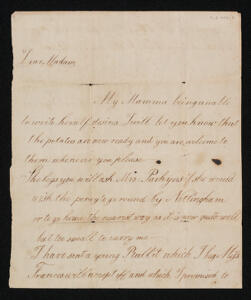 Dear Madam,
My Mamma being unable
to write herself desires I will let you know that
the potatoes are now ready and you are welcome to
them whenever you please
She begs you will ask Mrs. Parkyns if she would
wish the poney to go round by Nottingham
or to go home the nearest way as it is now quite well
but too small to carry me
I have sent a young Rabbit which I hope Miss
Frances will accept off and which I promised to